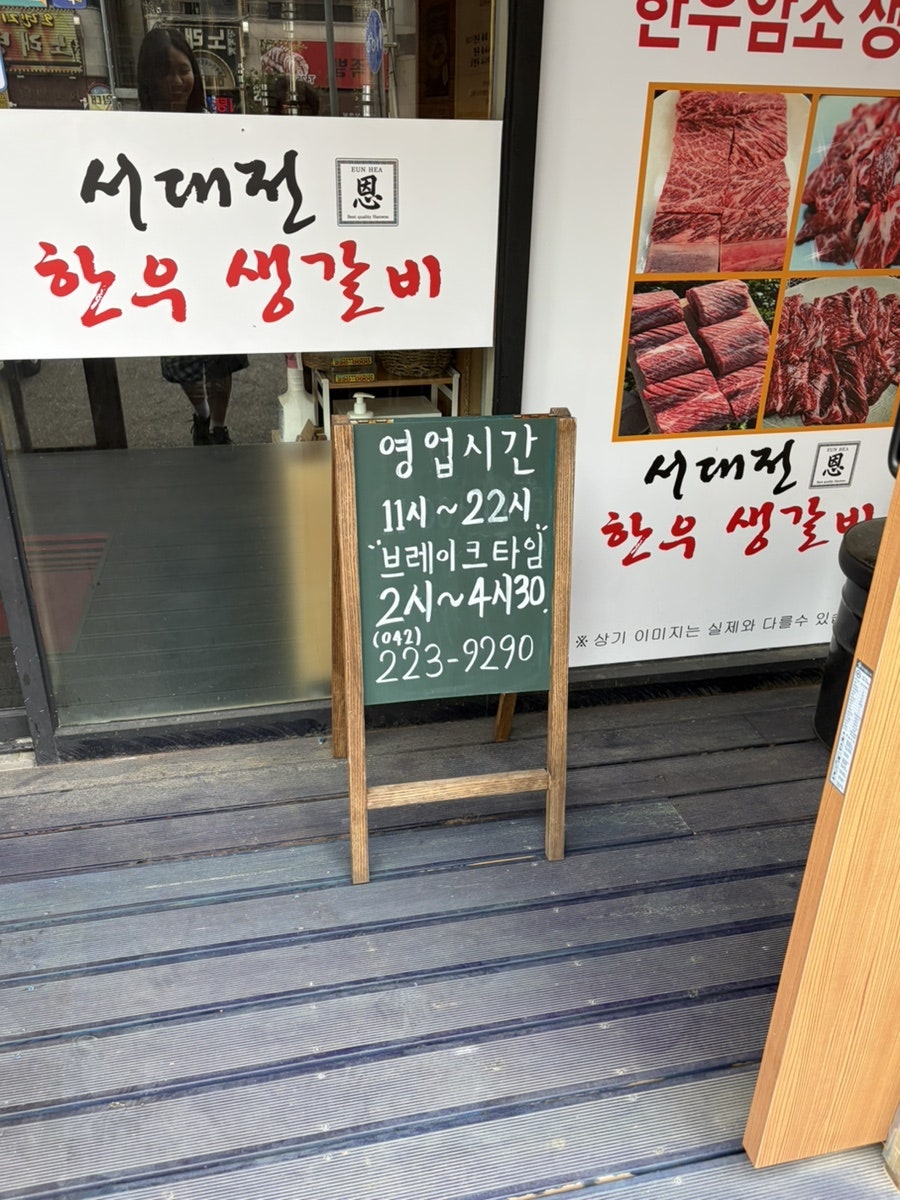 서대전
EUN HEA
恩
한우 생갈비
영업시간
11시~22시
"브레이크타임"
2시~4시30.
(042)
223-9290
한우암소 생
서대전
EUN HEA
恩
한우 생갈비
※ 상기 이미지는 실제와 다를수 있습
노래
족발